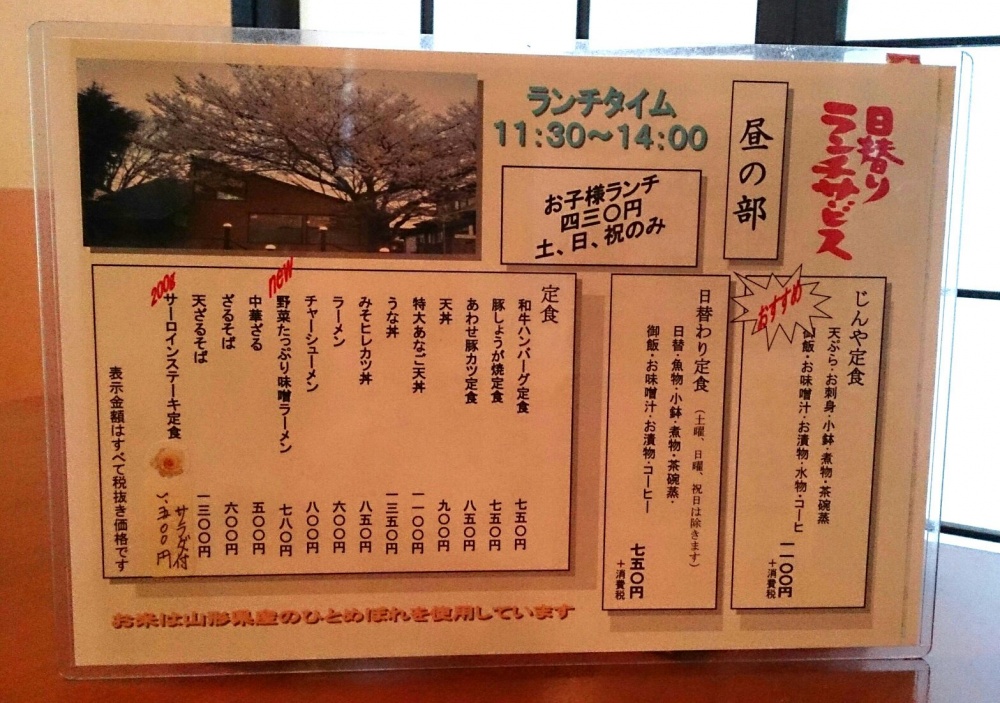 日替り
ランチサービス
昼の部
ランチタイム
11:30～14:00
お子様ランチ
四三〇円
土、日、祝のみ
おすすめ
じんや定食
天ぷら・お刺身・小鉢・煮物・茶碗蒸
御飯・お味噌汁・お漬物・水物・コーヒー
一一〇〇円
＋消費税
日替わり定食（土曜、日曜、祝日は除きます）
日替・魚物・小鉢・煮物・茶碗蒸・
御飯・お味噌汁・お漬物・コーヒー
七五〇円
＋消費税
定食
和牛ハンバーグ定食 七五〇円
豚しょうが焼定食 七五〇円
あわせ豚カツ定食 八五〇円
天丼 九〇〇円
特大あなご天丼 一一〇〇円
うな丼 一三五〇円
みそヒレカツ丼 八五〇円
ラーメン 六〇〇円
チャーシューメン 八〇〇円
new
野菜たっぷり味噌ラーメン 七八〇円
中華ざる 五〇〇円
ざるそば 六〇〇円
天ざるそば 一三〇〇円
200g
サーロインステーキ定食 サラダ付
五〇〇円
表示金額はすべて税抜き価格です
お米は山形県産のひとめぼれを使用しています